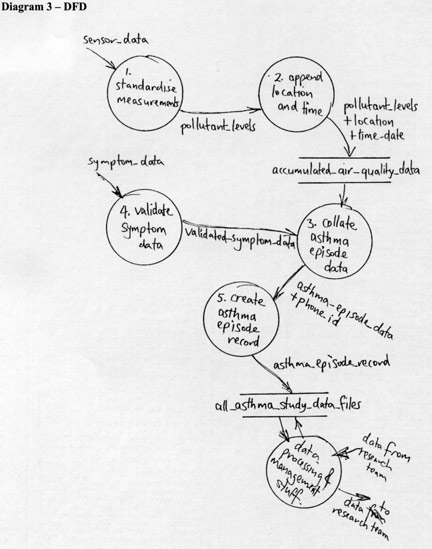 Diagram 3 – DFD
sensor_data
1.
standardise
measurements
pollutant_levels
2. append
location
and time
pollutant_levels
+location
+time-date
accumulated_air_quality_data
symptom_data
4. validate
symptom
data
validated_symptom_data
3. collate
asthma
episode
data
asthma_episode_data
+phone_id
5. create
asthma
episode
record
asthma_episode_record
all_asthma_study_data_files
data
processing &
management
stuff.
data from
research
team
data to
research team